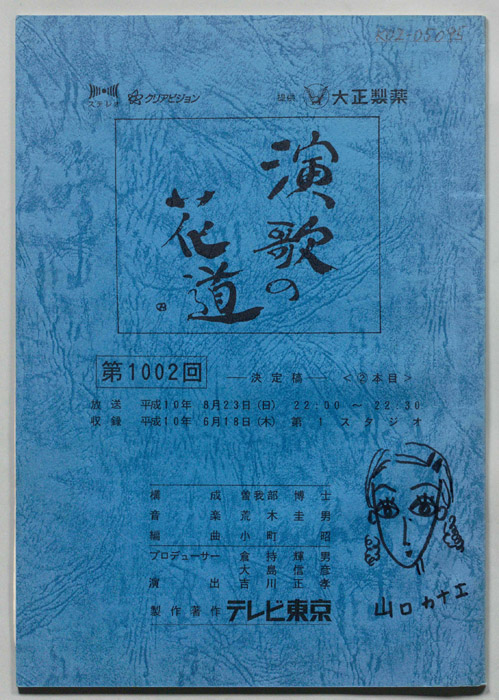 ステレオ クリアビジョン 提供 大正製薬
演歌の
花道
第1002回 ―決定稿― <②本目>
放送 平成10年 8月23日(日) 22:00～22:30
収録 平成10年 6月18日(木) 第1スタジオ
構成 曽我部博士
音楽 荒木圭男
編曲 小町昭
プロデューサー 倉持輝男
大島信彦
演出 吉川正孝
製作著作 テレビ東京
山口カナエ